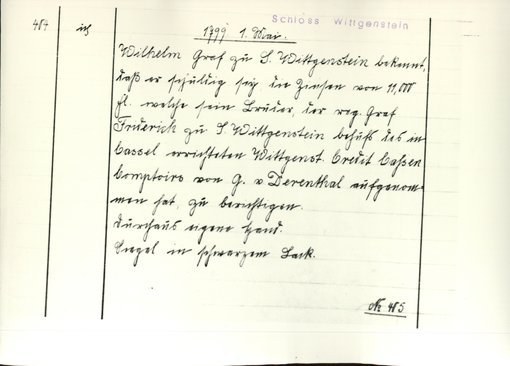 Schloss Wittgenstein
484
ich
1799 1. Mai.
Wilhelm Graf zu S. Wittgenstein bekennt,
daß er schuldig sey die Zinsen von 11,000
fl. welche sein Bruder, der reg. Graf
Friderich zu S. Wittgenstein behufs des in
Cassel errichteten Wittgenst. Credit Cassen
Comptoirs von G. v. Derenthal aufgenom-
men hat, zu berichtigen.
Durchaus eigene Hand.
Siegel in schwarzem Lack.
No 485